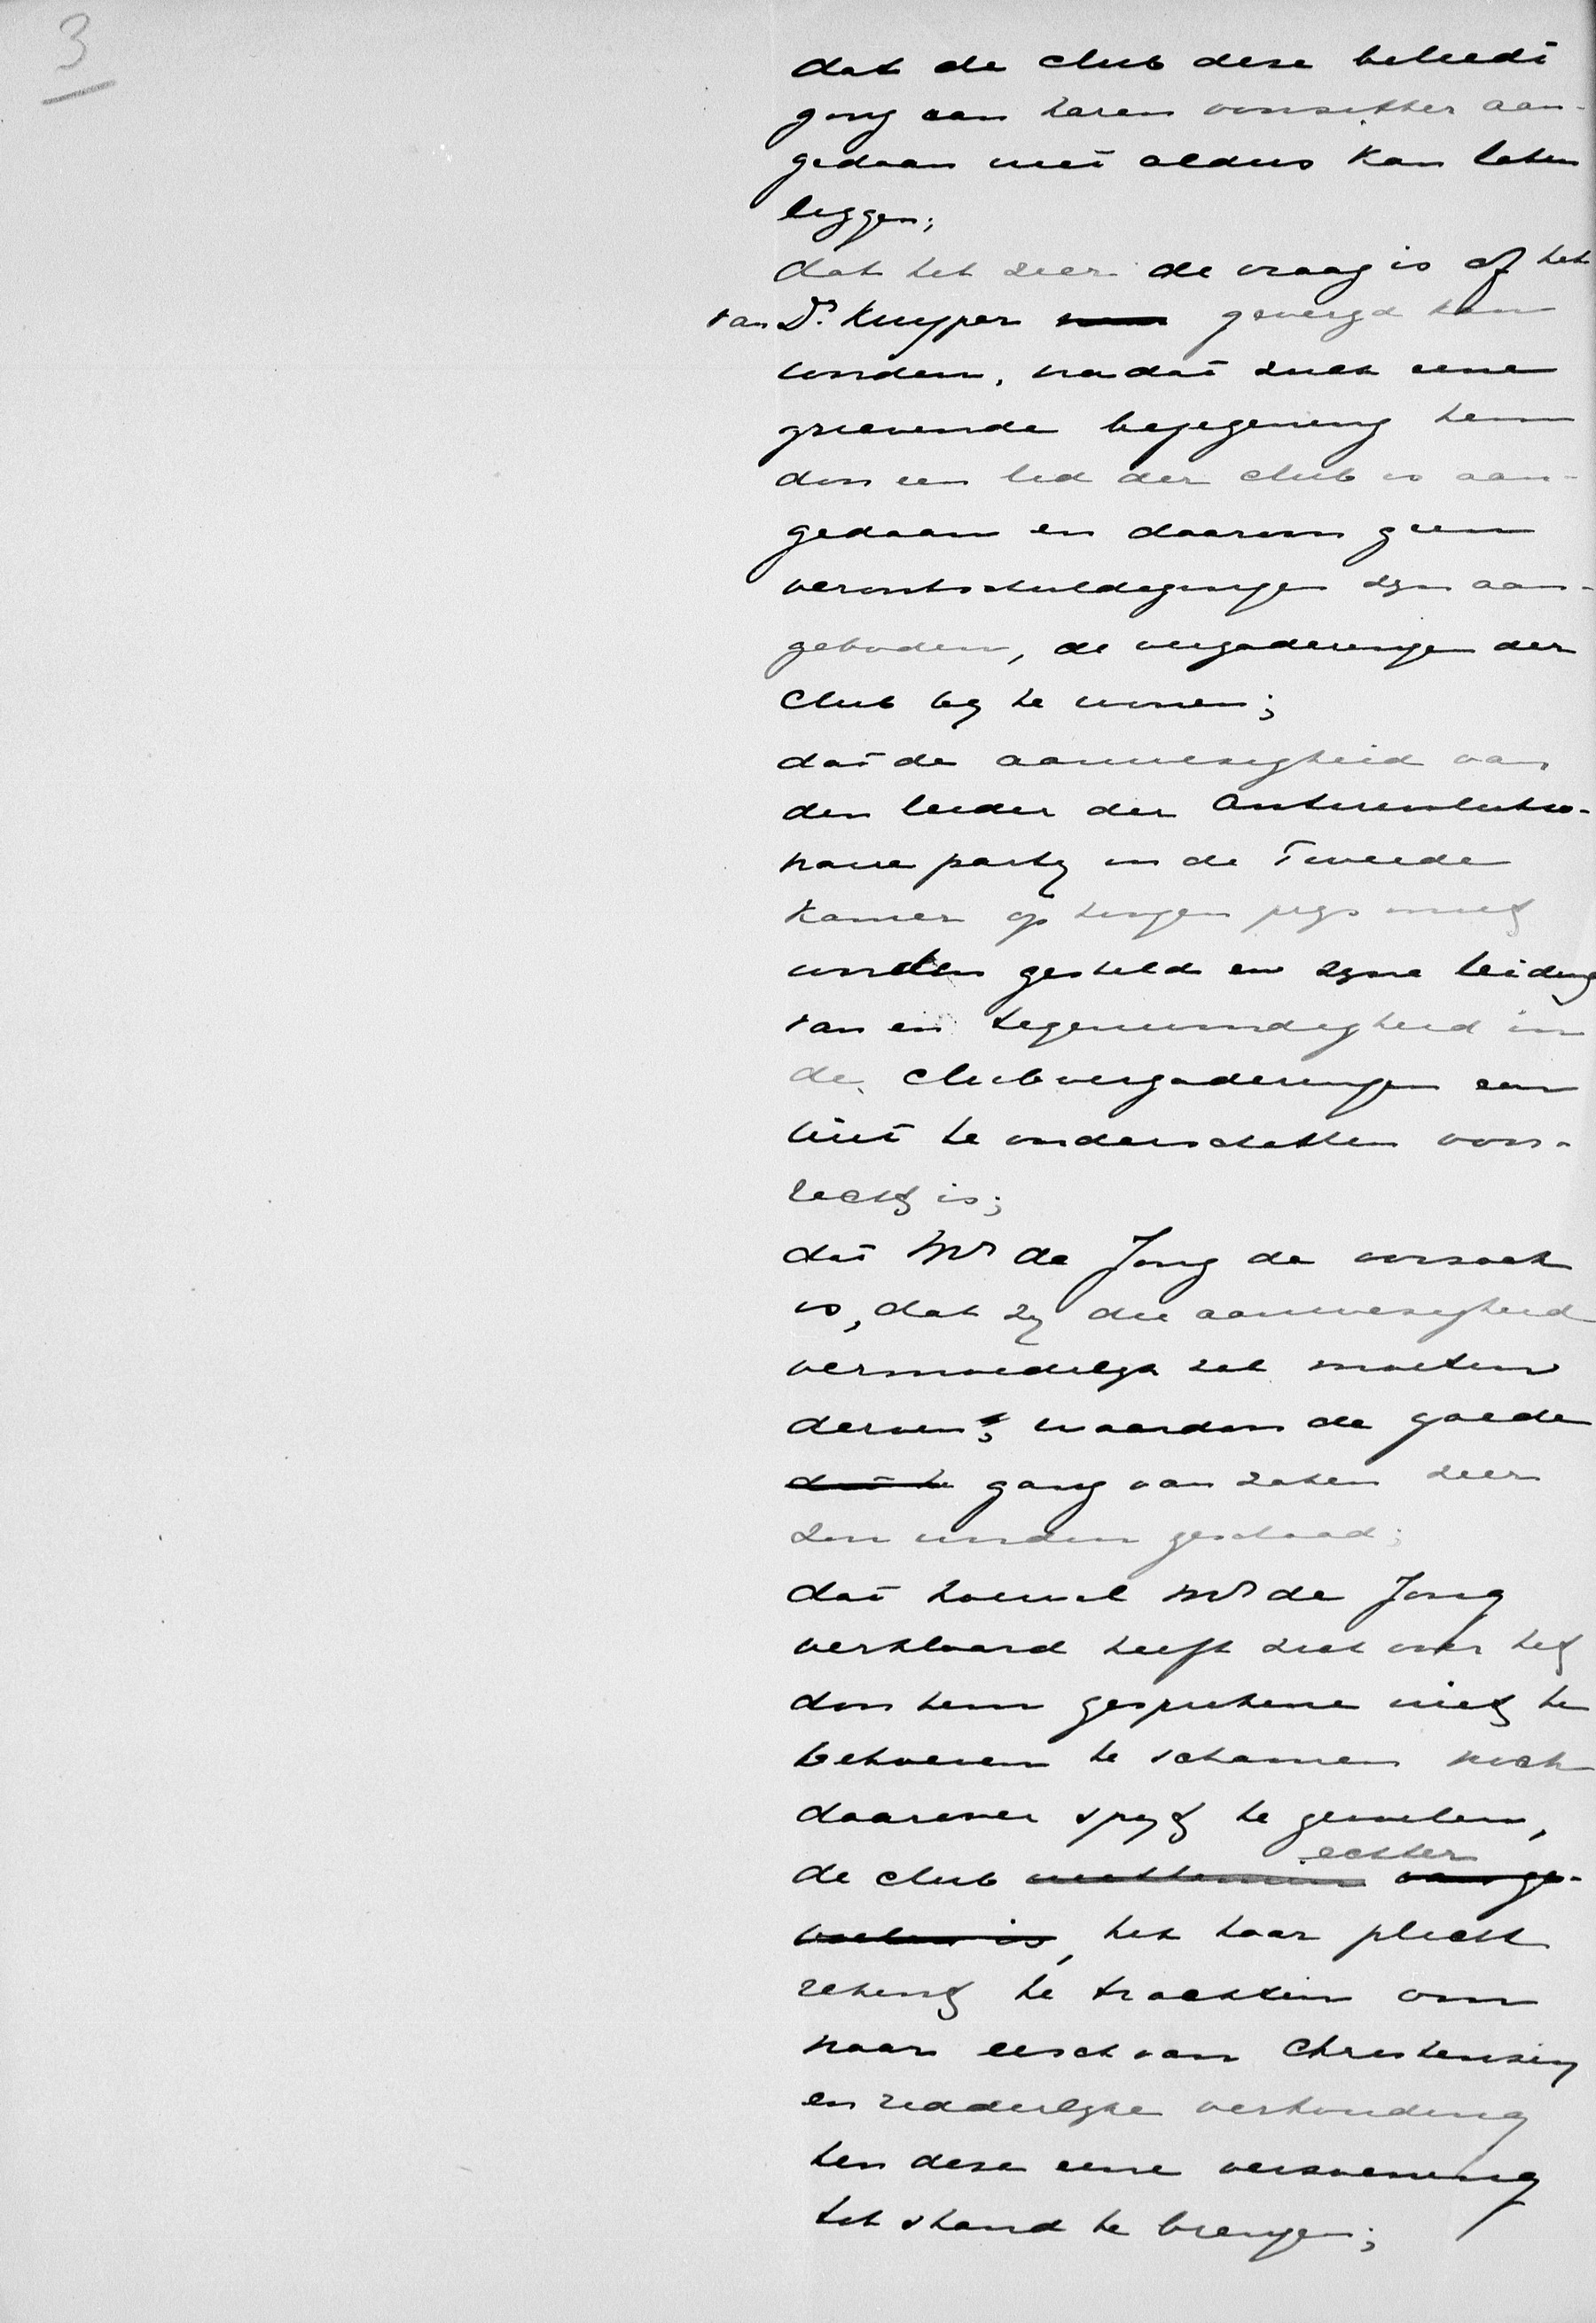 3
dat de club deze beleedi
ging aan haren voorzitter aan-
gedaan niet aldus kan laten
liggen;
dat het zeer de vraag is of het
van Dr. Kuyper gevergd kan
worden, nadat zulk eene
grievende bejegening hem
door een lid der club is aan-
gedaan en daarvoor geen
verontschuldigingen zijn aan-
geboden, de vergaderingen der
Club bij te wonen;
dat de aanwezigheid van
den leider der Antirevolutio-
naire partij in de Tweede
Kamer op hoogen prijs moet
worden gesteld en zijne leiding
van en tegenwoordigheid in
de clubvergaderingen een
niet te onderschatten voor-
recht is;
dat Mr de Jong de oorzaak
is, dat zij die aanwezigheid
vermoedelijk zal moeten
derven; waardoor de goede
gang van zaken zeer
zou worden geschaad;
dat hoewel Mr de Jong
verklaard heeft zich over het
door hem gesprokene niet te
behoeven te schamen noch
daarover spijt te gevoelen,
de club echter
het haar plicht
rekent te trachten om
naar eisch van Christenzin
en ridderlijke verhouding
ten deze eene verzoening
tot stand te brengen;